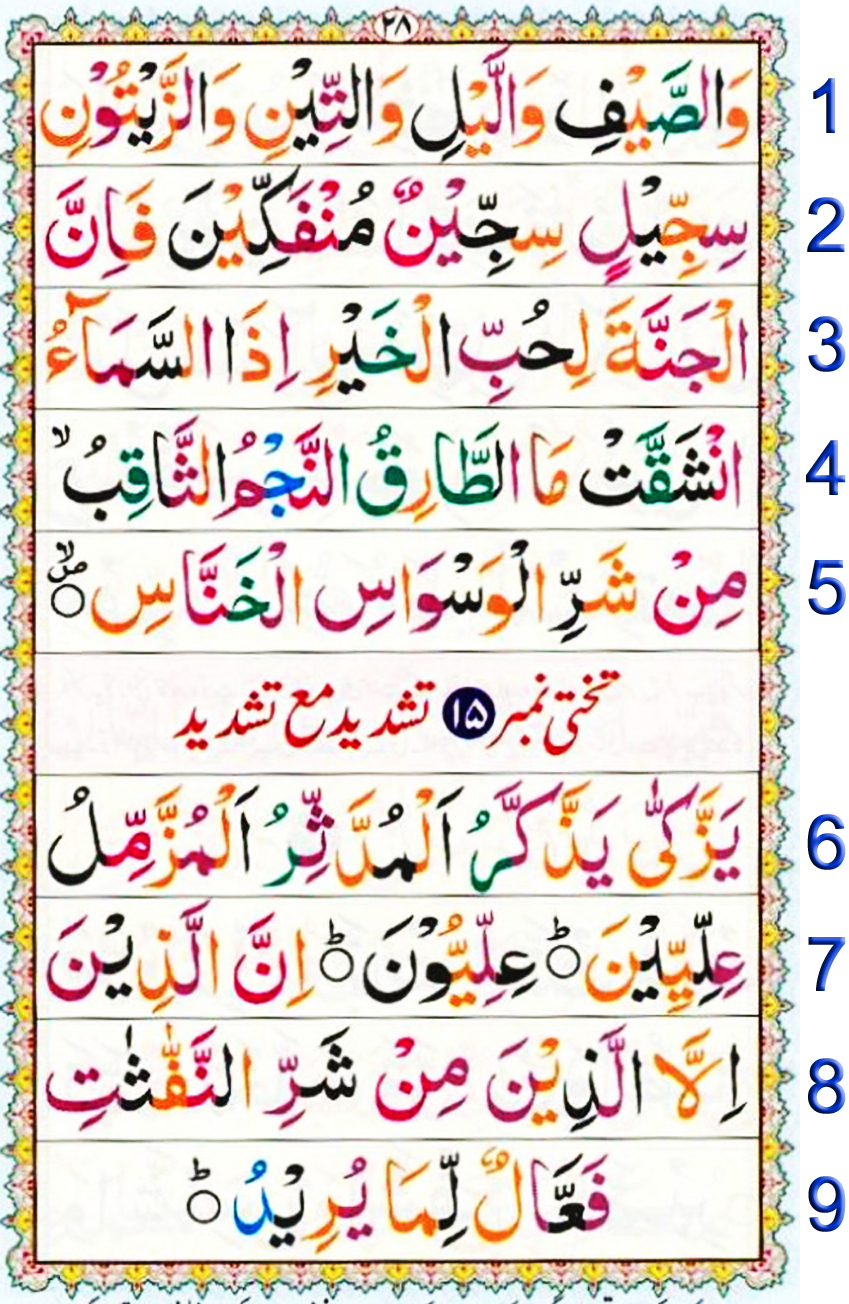 ٢٨
وَالصَّيْفِ وَالَّيْلِ وَالتِّيْنِ وَالزَّيْتُوْنِ 1
سِجِّيْلٍ سِجِّيْنٌ مُنْفَكِّيْنَ فَاِنَّ 2
الْجَنَّةَ لِحُبِّ الْخَيْرِ اِذَا السَّمَآءُ 3
انْشَقَّتْ مَا الطَّارِقُ النَّجْمُ الثَّاقِبُ ۙ 4
مِنْ شَرِّ الْوَسْوَاسِ الْخَنَّاسِ 5
تختی نمبر ١٥ تشدید مع تشدید
يَزَّكّٰى يَذَّكَّرُ اَلْمُدَّثِّرُ اَلْمُزَّمِّلُ 6
عِلِّيِّيْنَ ؕ عِلِّيُّوْنَ ؕ اِنَّ الَّذِيْنَ 7
اِلَّا الَّذِيْنَ مِنْ شَرِّ النَّفّٰثٰتِ 8
فَعَّالٌ لِّمَا يُرِيْدُ ؕ 9